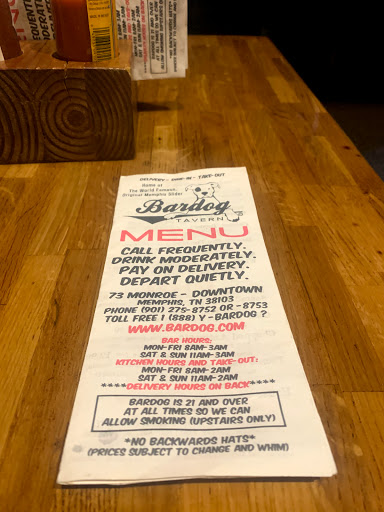 DELIVERY - DINE-IN - TAKE-OUT
Home of
The World Famous,
Original Memphis Slider
Bardog
TAVERN
MENU
CALL FREQUENTLY.
DRINK MODERATELY.
PAY ON DELIVERY.
DEPART QUIETLY.
73 MONROE - DOWNTOWN
MEMPHIS, TN 38103
PHONE (901) 275-8752 OR -8753
TOLL FREE 1 (888) Y-BARDOG ?
WWW.BARDOG.COM
BAR HOURS:
MON-FRI 8AM-3AM
SAT & SUN 11AM-3AM
KITCHEN HOURS AND TAKE-OUT:
MON-FRI 8AM-2AM
SAT & SUN 11AM-2AM
****DELIVERY HOURS ON BACK****
BARDOG IS 21 AND OVER
AT ALL TIMES SO WE CAN
ALLOW SMOKING (UPSTAIRS ONLY)
*NO BACKWARDS HATS*
(PRICES SUBJECT TO CHANGE AND WHIM)